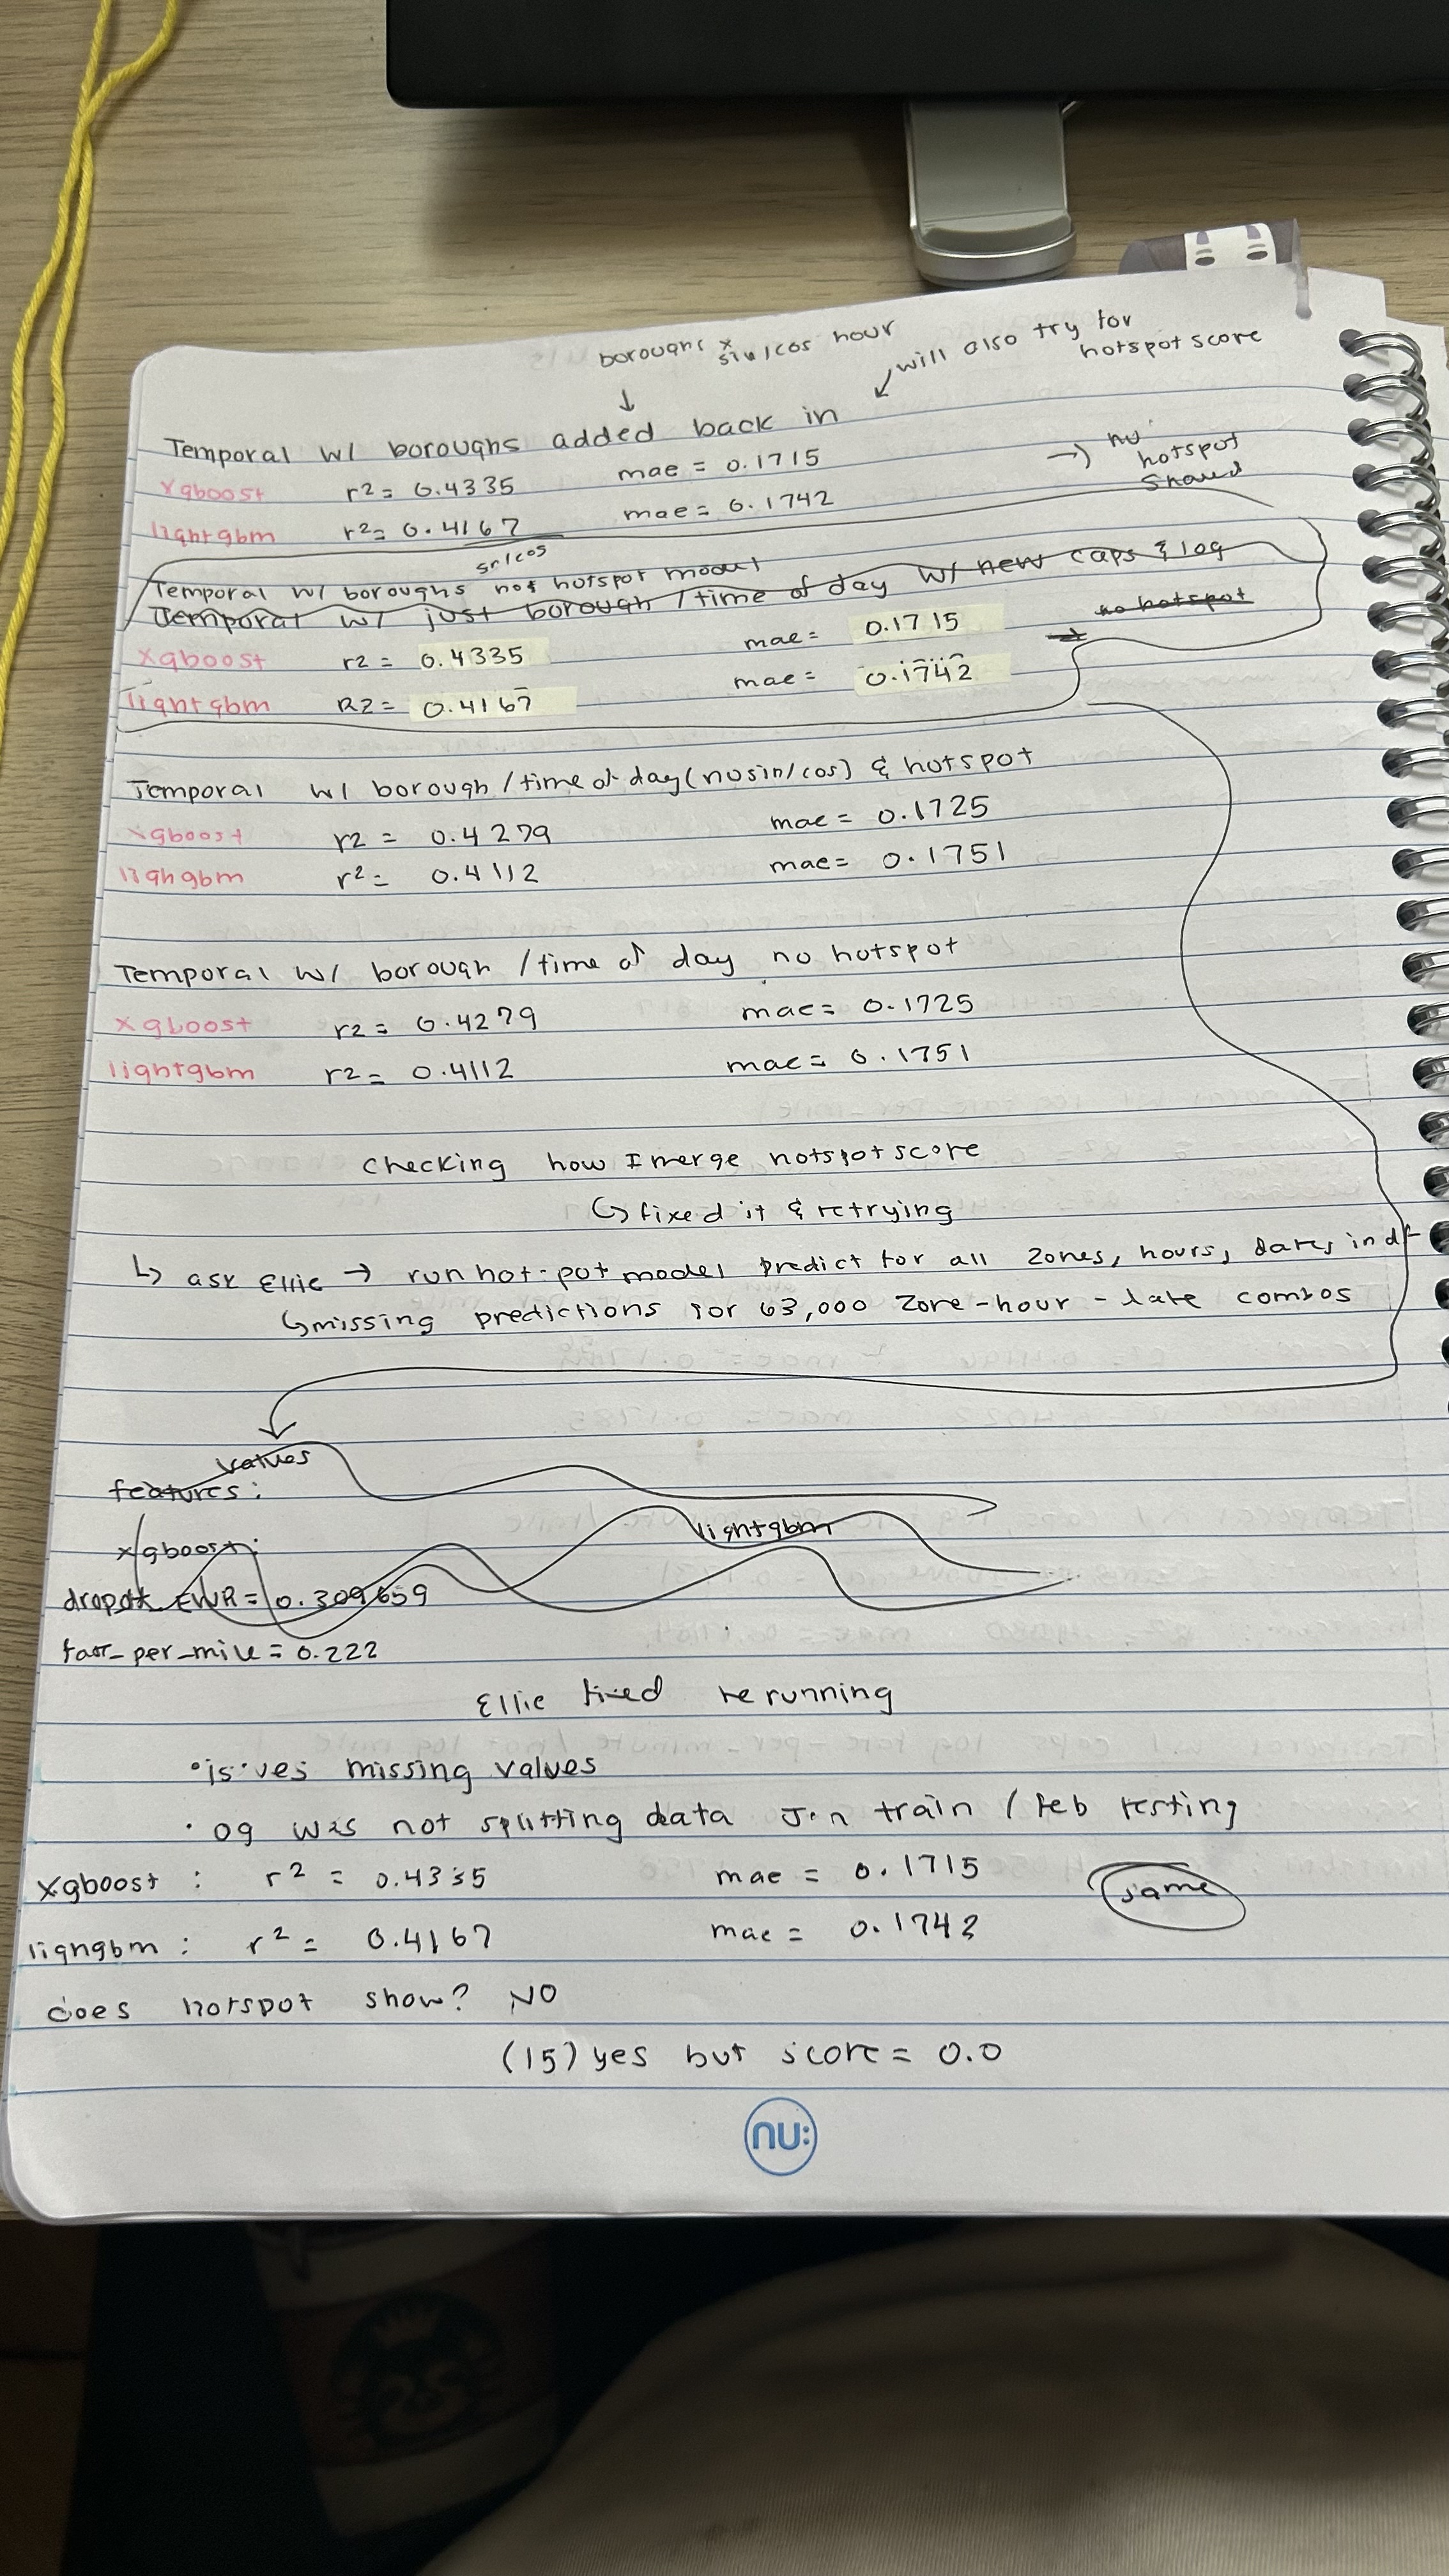 boroughs x
sin/cos hour
will also try for
hotspot score
Temporal w/ boroughs added back in
xgboost r2 = 0.4335 mae = 0.1715
lightgbm r2= 0.4167 mae = 0.1742
→ no
hotspot
shared
sin/cos
Temporal w/ boroughs hotspot model
Temporal w/ just borough / time of day w/ new caps & log
no hotspot
xgboost r2 = 0.4335 mae = 0.1715
lightgbm R2 = 0.4167 mae = 0.1742
Temporal w/ borough / time of day (no sin/cos) & hotspot
xgboost r2 = 0.4279 mae = 0.1725
lighgbm r2 = 0.4112 mae = 0.1751
Temporal w/ borough / time of day no hotspot
xgboost r2 = 0.4279 mae = 0.1725
lightgbm r2 = 0.4112 mae = 0.1751
checking how I merge hotspot score
↳ fixed it & retrying
↳ ask Ellie → run hot-pot model predict for all zones, hours, dates in df
↳ missing predictions for 63,000 zone-hour-date combos
values
features:
xgboost: lightgbm
dropoff EWR = 0.309659
fare_per_mile = 0.222
Ellie fixed rerunning
• issues missing values
• og was not splitting data Jan train / feb testing
xgboost : r2 = 0.4335 mae = 0.1715 same
lighgbm : r2 = 0.4167 mae = 0.1742
does hotspot show? NO
(15) yes but score = 0.0
nu: